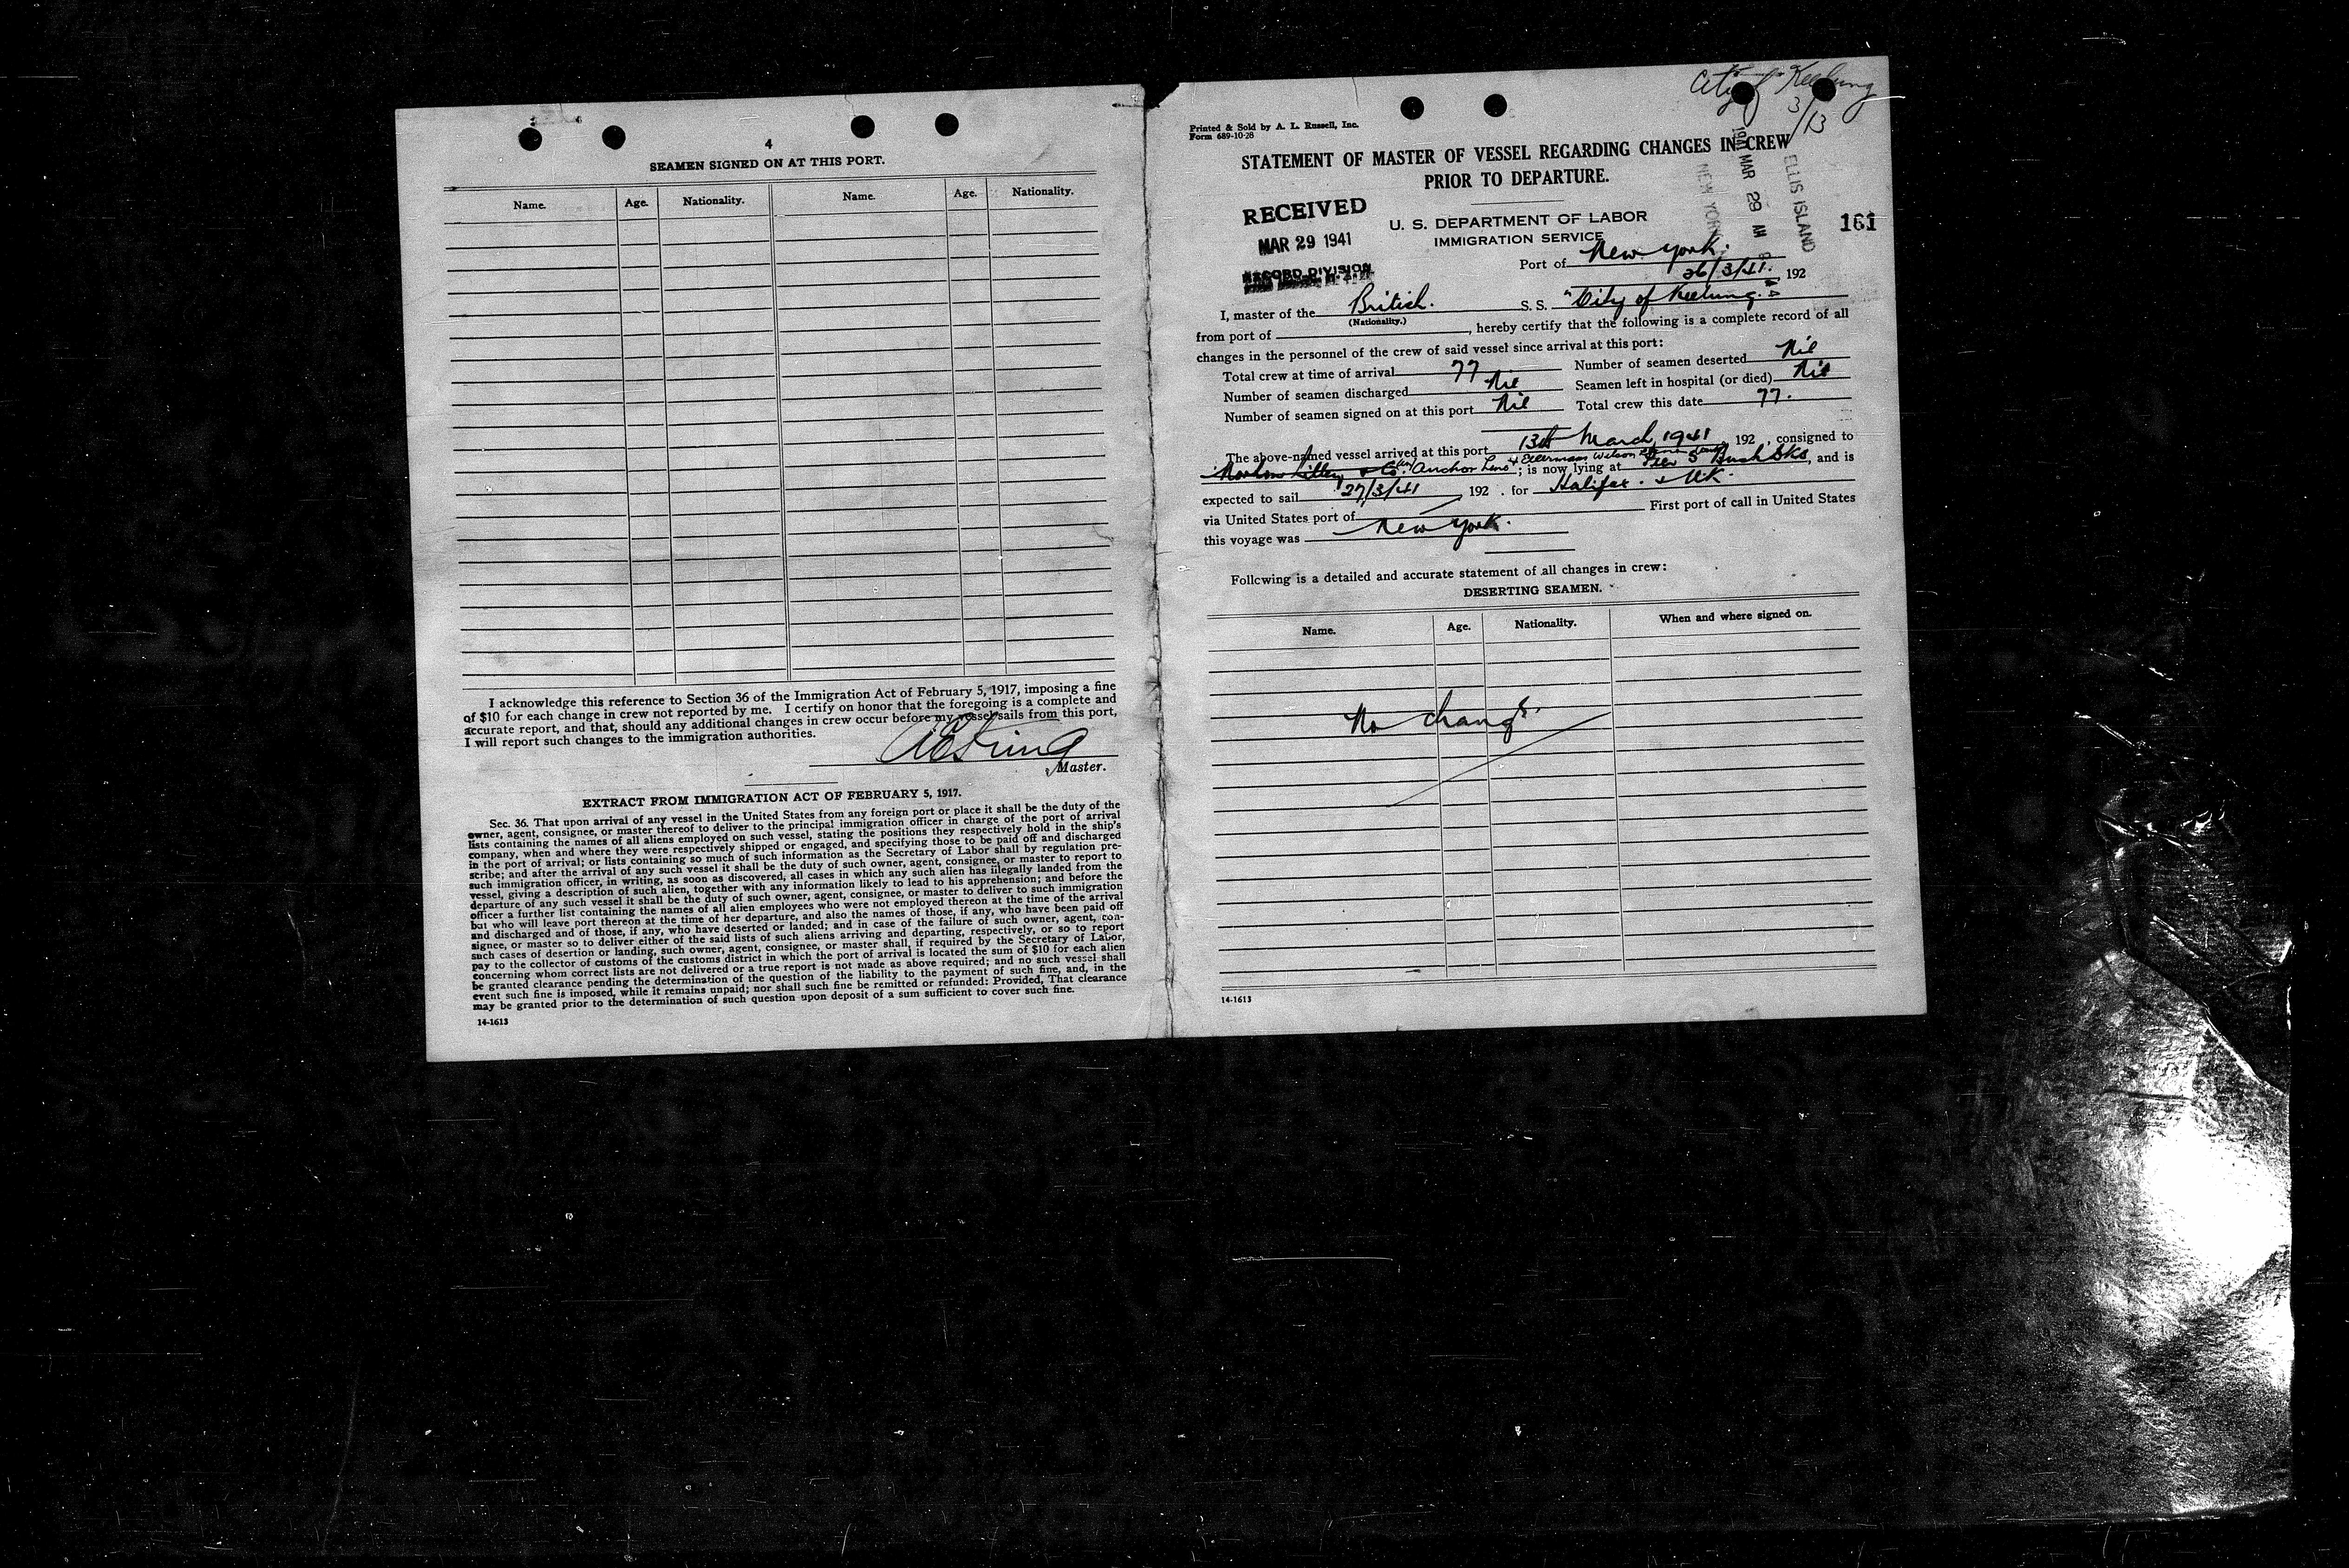 4
SEAMEN SIGNED ON AT THIS PORT.
Name. Age. Nationality. Name. Age. Nationality.
I acknowledge this reference to Section 36 of the Immigration Act of February 5, 1917, imposing a fine
of $10 for each change in crew not reported by me. I certify on honor that the foregoing is a complete and
accurate report, and that, should any additional changes in crew occur before my vessel sails from this port,
I will report such changes to the immigration authorities.
Master.
EXTRACT FROM IMMIGRATION ACT OF FEBRUARY 5, 1917.
Sec. 36. That upon arrival of any vessel in the United States from any foreign port or place it shall be the duty of the
owner, agent, consignee, or master thereof to deliver to the principal immigration officer in charge of the port of arrival
lists containing the names of all aliens employed on such vessel, stating the positions they respectively hold in the ship's
company, when and where they were respectively shipped or engaged, and specifying those to be paid off and discharged
in the port of arrival; or lists containing so much of such information as the Secretary of Labor shall by regulation pre-
scribe; and after the arrival of any such vessel it shall be the duty of such owner, agent, consignee, or master to report to
such immigration officer, in writing, as soon as discovered, all cases in which any such alien has illegally landed from the
vessel, giving a description of such alien, together with any information likely to lead to his apprehension; and before the
departure of any such vessel it shall be the duty of such owner, agent, consignee, or master to deliver to such immigration
officer a further list containing the names of all alien employees who were not employed thereon at the time of the arrival
but who will leave port thereon at the time of her departure, and also the names of those, if any, who have been paid off
and discharged and of those, if any, who have deserted or landed; and in case of the failure of such owner, agent, con-
signee, or master so to deliver either of the said lists of such aliens arriving and departing, respectively, or so to report
such cases of desertion or landing, such owner, agent, consignee, or master shall, if required by the Secretary of Labor,
pay to the collector of customs of the customs district in which the port of arrival is located the sum of $10 for each alien
concerning whom correct lists are not delivered or a true report is not made as above required; and no such vessel shall
be granted clearance pending the determination of the question of the liability to the payment of such fine, and, in the
event such fine is imposed, while it remains unpaid; nor shall such fine be remitted or refunded: Provided, That clearance
may be granted prior to the determination of such question upon deposit of a sum sufficient to cover such fine.
14-1613
City of Keelung
3/13
Printed & Sold by A. L. Russell, Inc.
Form 689-10-28
STATEMENT OF MASTER OF VESSEL REGARDING CHANGES IN CREW
PRIOR TO DEPARTURE.
RECEIVED
MAR 29 1941
RECORD DIVISION
1941 MAR 29 AM
ELLIS ISLAND
NEW YORK
161
U. S. DEPARTMENT OF LABOR
IMMIGRATION SERVICE
Port of New York.
26/3/41. 192
I, master of the British. S. S. "City of Keelung."
(Nationality.)
from port of , hereby certify that the following is a complete record of all
changes in the personnel of the crew of said vessel since arrival at this port:
Total crew at time of arrival 77 Number of seamen deserted Nil
Number of seamen discharged Nil Seamen left in hospital (or died) Nil
Number of seamen signed on at this port Nil Total crew this date 77.
The above-named vessel arrived at this port 13th March 1941 192 , consigned to
Anchor Line Ellerman Wilson ; is now lying at Pier 5 Bush Dks, and is
expected to sail 27/3/41 192 . for Halifax. & U.K.
via United States port of First port of call in United States
this voyage was New York.
Following is a detailed and accurate statement of all changes in crew:
DESERTING SEAMEN.
Name. Age. Nationality. When and where signed on.
No change.
14-1613